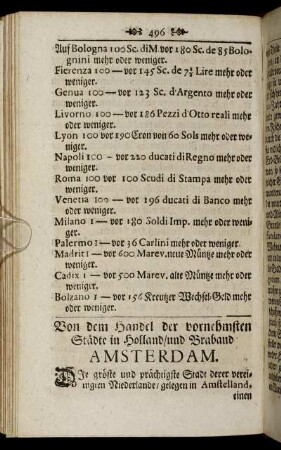 496
Auf Bologna 100 Sc. di M. vor 180 Sc. de 85 Bolo-
gnini mehr oder weniger.
Fierenza 100 — vor 145 Sc. de 7½ Lire mehr oder
weniger.
Genua 100 — vor 123 Sc. d'Argento mehr oder
weniger.
Livorno 100 — vor 186 Pezzi d'Otto reali mehr
oder weniger.
Lyon 100 vor 190 Cron von 60 Sols mehr oder we-
niger.
Napoli 100 - vor 220 ducati di Regno mehr oder
weniger.
Roma 100 vor 100 Scudi di Stampa mehr oder
weniger.
Venetia 100 -- vor 196 ducati di Banco mehr
oder weniger.
Milano 1 — vor 180 Soldi Imp. mehr oder weni-
ger.
Palermo 1 - vor 36 Carlini mehr oder weniger.
Madrit 1 — vor 600 Marev. neue Müntze mehr oder
weniger.
Cadix 1 - vor 500 Marev. alte Müntze mehr oder
weniger.
Bolzano 1 - vor 156 Kreutzer Wechsel-Geld mehr
oder weniger.
Von dem Handel der vornehmsten
Städte in Holland/und Braband
AMSTERDAM.
Die gröste und prächtigste Stadt derer verei-
nigten Niederlande/ gelegen in Amstelland,
einen